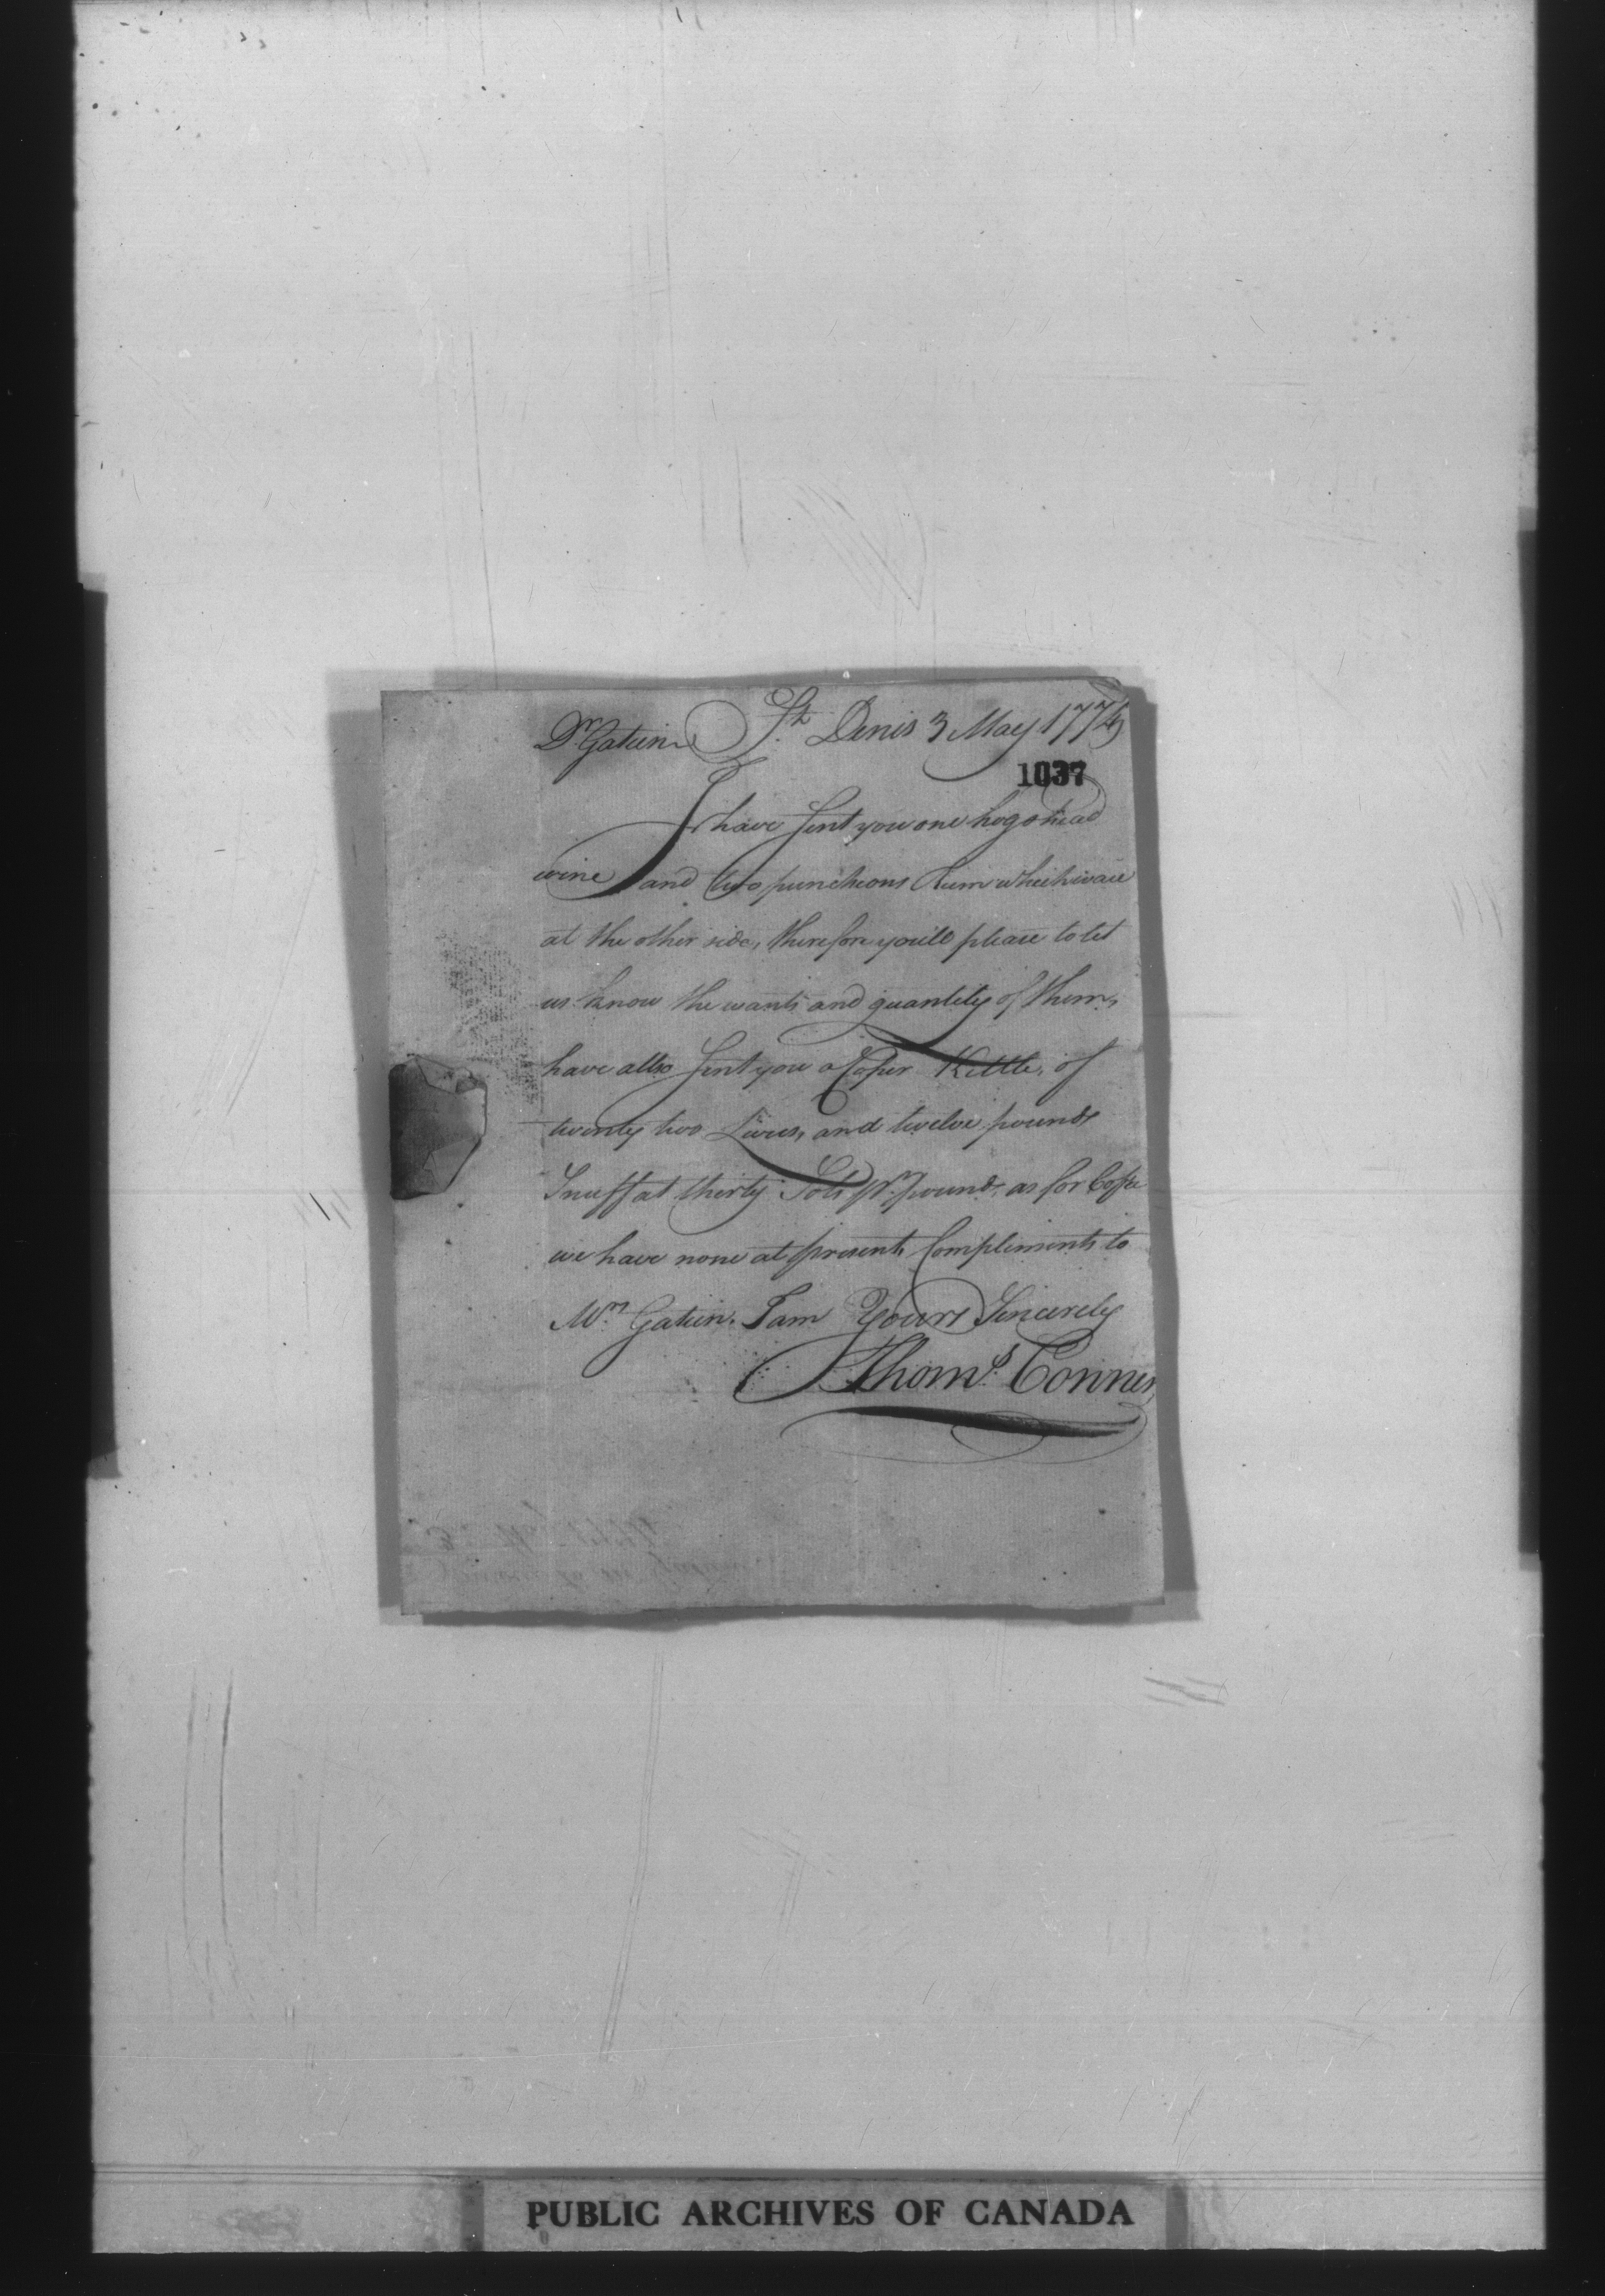 Dr. Gatien St. Denis 3 May 1774
1037
I have sent you one hogshead
wine and two puncheons Rum which ware
at the other side, therefore youill please to let
us know the wants and quantity of them,
have allso sent you a Coper Kettle, of
twenty two Livres, and twelve pounds
Snuff at thirty Sols pr. pound, as for Cofee
we have none at present, Compliments to
Mrs. Gatien. I am Yours Sincerely
Thoms. Conner
PUBLIC ARCHIVES OF CANADA